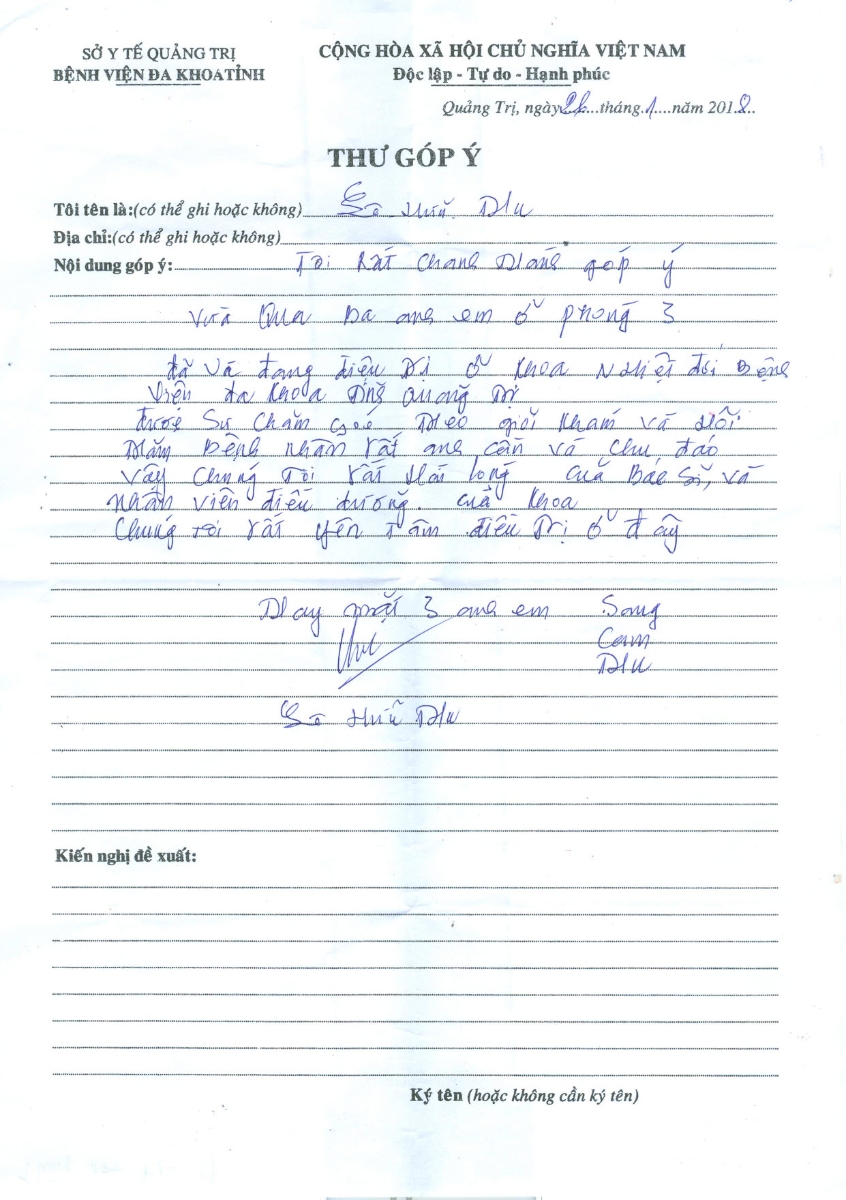 SỞ Y TẾ QUẢNG TRỊ
BỆNH VIỆN ĐA KHOA TỈNH
CỘNG HÒA XÃ HỘI CHỦ NGHĨA VIỆT NAM
Độc lập - Tự do - Hạnh phúc
Quảng Trị, ngày ... tháng .1... năm 2018..
THƯ GÓP Ý
Tôi tên là:(có thể ghi hoặc không) Hữu Thu
Địa chỉ:(có thể ghi hoặc không)
Nội dung góp ý: Tôi rất chang tháng góp ý
Vừa qua ba anh em ở phòng 3
đã và đang điều trị ở khoa Nhiệt đới bệnh
viện đa khoa tỉng Quảng Trị
được sự chăm soc theo giỏi khám và hỏi
thăm bệnh nhân rất ân cần và chu đáo
vậy chúng tôi rất hài lòng của Bác sĩ, và
nhân viên điều dưỡng. của khoa
Chúng tôi rất yên tâm điều trị ở đây
Thay mặt 3 anh em Song
Cam
Thu
Hữu Thu
Kiến nghị đề xuất:
Ký tên (hoặc không cần ký tên)